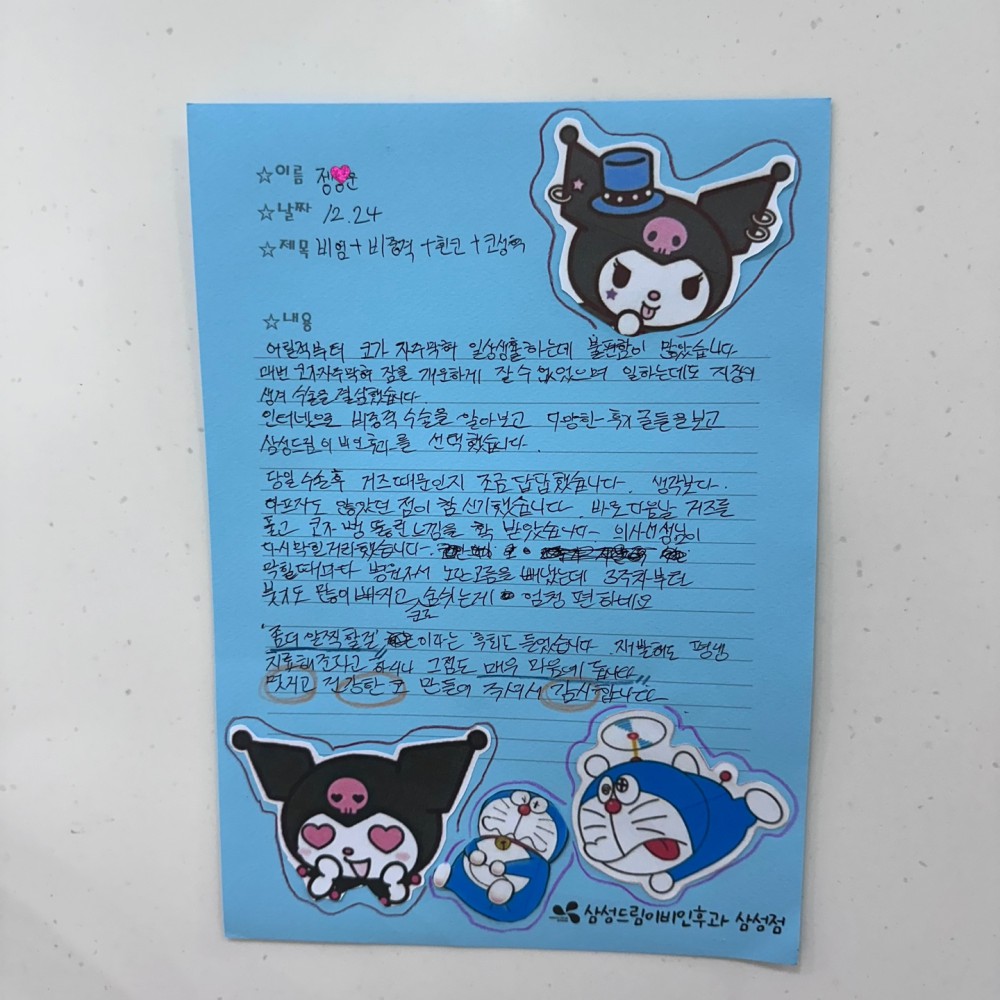 ☆이름 정 운
☆날짜 12.24
☆제목 비염+비중격+휜코+코성형
☆내용
어릴적부터 코가 자주막혀 일상생활하는데 불편함이 많았습니다
매번 코가자주막혀 잠을 개운하게 잘수없었으며 일하는데도 지장이
생겨 수술을 결심했습니다
인터넷으로 비중격수술을 알아보고 후기글들을보고
삼성드림이비인후과를 선택했습니다.
당일 수술후 거즈때문인지 조금 답답했습니다. 생각보다.
아프지도 않았던 점이 참 신기했습니다. 바로다음날 거즈를
풀고 코가 뻥 뚫린느낌을 확 받았습니다 의사선생님이
다시막힐거라했습니다.
막힐때마다 병원가서 노란고름을 빼냈는데 3주차부터
붓기도 많이빠지고 코로 숨쉬는게 엄청 편하네요
'좀더 일찍할걸' 이라는 후회도 들었습니다. 재발해도 평생
치료해주자고 하시니 그점도 매우 마음에 듭니다
멋지고 건강한 코 만들어 주셔서 감사합니다
삼성드림이비인후과 삼성점